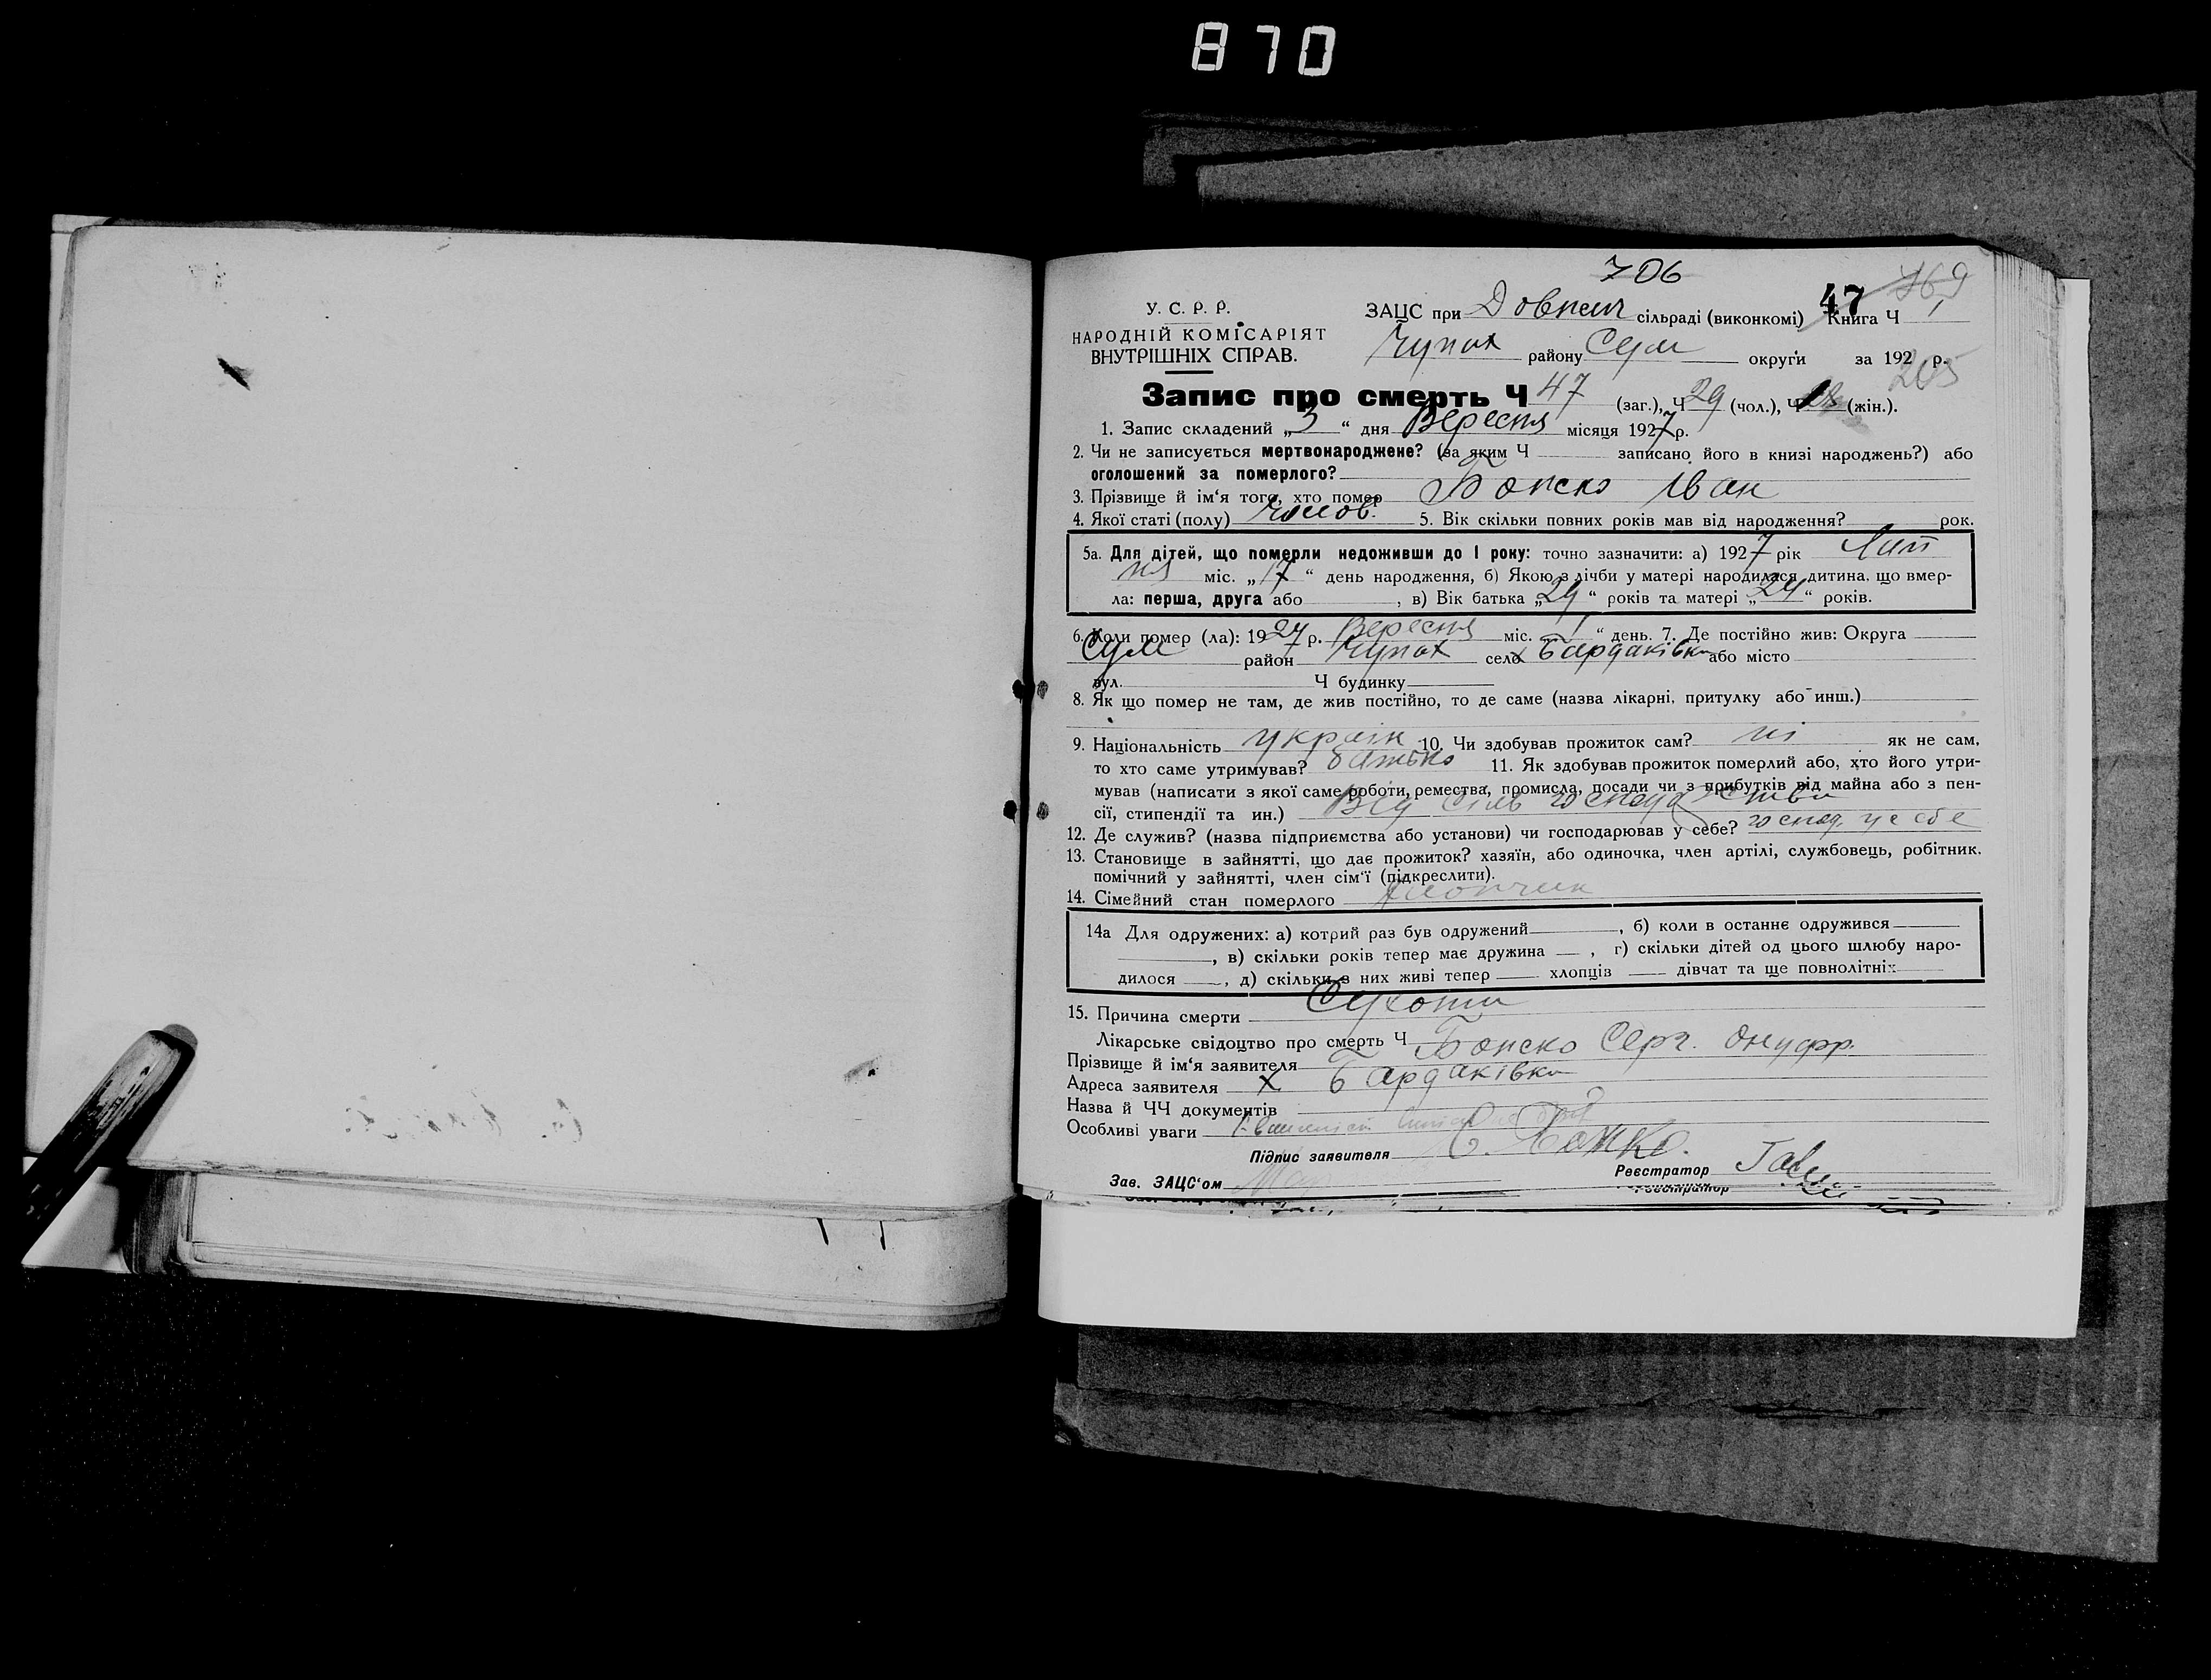 870
706
У. С. Р. Р. ЗАЦС при Довжич сільраді (виконкомі) 47 Книга Ч 1
НАРОДНІЙ КОМІСАРІЯТ
ВНУТРІШНІХ СПРАВ. Чупах району Сум округи за 192 р.
205
Запис про смерть Ч 47 (заг.), Ч 29 (чол.), Ч 18 (жін.).
1. Запис складений „3“ дня Вересня місяця 1927 р.
2. Чи не записується мертвонароджене? (за яким Ч записано його в книзі народжень?) або
оголошений за померлого?
3. Прізвище й ім‘я того, хто помер Божко Іван
4. Якої статі (полу) Чолов. 5. Вік скільки повних років мав від народження? рок.
5а. Для дітей, що померли недоживши до 1 року: точно зазначити: а) 1927 рік Лип
ня міс. „17“ день народження, б) Якою з лічби у матері народилася дитина, що вмер-
ла: перша, друга або , в) Вік батька „29“ років та матері „24“ років.
6. Коли помер (ла): 1927 р. Вересня міс. „1“ день. 7. Де постійно жив: Округа
Сум район Чупах село х Бардаківка або місто
вул. Ч будинку
8. Як що помер не там, де жив постійно, то де саме (назва лікарні, притулку або инш.)
9. Національність україн 10. Чи здобував прожиток сам? ні як не сам,
то хто саме утримував? батько 11. Як здобував прожиток померлий або, хто його утри-
мував (написати з якої саме роботи, ремества, промисла, посади чи з прибутків від майна або з пен-
сії, стипендії та ин.) Від сіль господарства
12. Де служив? (назва підприємства або установи) чи господарював у себе? господ. у себе
13. Становище в зайнятті, що дає прожиток? хазяїн, або одиночка, член артілі, службовець, робітник,
помічний у зайнятті, член сім‘ї (підкреслити).
14. Сімейний стан померлого хлопчик
14а Для одружених: а) котрий раз був одружений , б) коли в останнє одружився
, в) скільки років тепер має дружина , г) скільки дітей од цього шлюбу наро-
дилося , д) скільки з них живі тепер хлопців дівчат та ще повнолітніх
15. Причина смерти Сухоти
Лікарське свідоцтво про смерть Ч
Прізвище й ім‘я заявителя Божко Серг. Онуфр.
Адреса заявителя х Бардаківка
Назва й ЧЧ документів
Особливі уваги
Підпис заявителя С. Божко.
Зав. ЗАЦС‘ом Реєстратор
Реєстратор